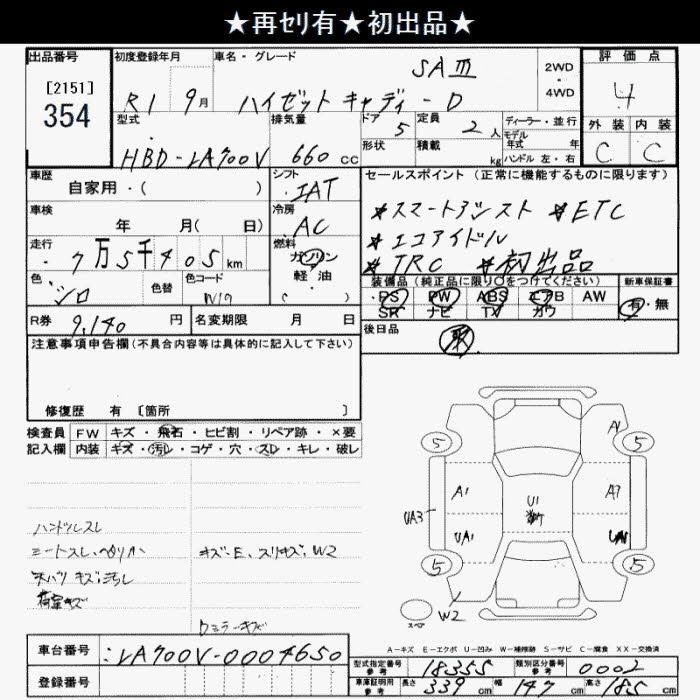 ★再セリ有★初出品★
出品番号 初度登録年月 車名・グレード 評価点
[2151] SAⅢ 2WD・4WD 4
354 R1 9月 ハイゼットキャディーD
型式 排気量 ドア 5 定員 2人 ディーラー・並行 外装 内装
HBD-LA700V 660cc 形状 積載 kg モデル年式 年 C C
ハンドル 左・右
車歴 自家用・( ) シフト IAT セールスポイント (正常に機能するものに限ります)
車検 年 月( 日) 冷房 AC *スマートアシスト *ETC
走行 7万5千405km 燃料 ガソリン *エコアイドル
軽・油 *TRC *初出品
色 シロ 色替 色コード W19 装備品 (純正品に限り○をつけてください) 新車保証書
PS PW ABS エアB AW 有・無
SR ナビ TV カワ
R券 9,140円 名変期限 月 日 後日品 取
注意事項申告欄 (不具合内容等は具体的に記入して下さい)
修復歴 有 [箇所 ]
検査員 FW キズ・飛石・ヒビ割・リペア跡・×要
記入欄 内装 キズ・汚レ・コゲ・穴・スレ・キレ・破レ
A1
5 5
A1 A3
U1
UA3
UA1
5 5
ハンドルスレ
キズ・E、スリキズ、W2
天バリ キズ汚レ
荷室キズ
W2
スペア
A-キズ E-エクボ U-凹み W-補修跡 S-サビ C-腐食 XX-交換済
車台番号 LA700V-0007650
登録番号
型式指定番号 参考 18355 類別区分番号 参考 0002
車庫証明用 参考 長さ 339cm 幅 147cm 高さ 185cm